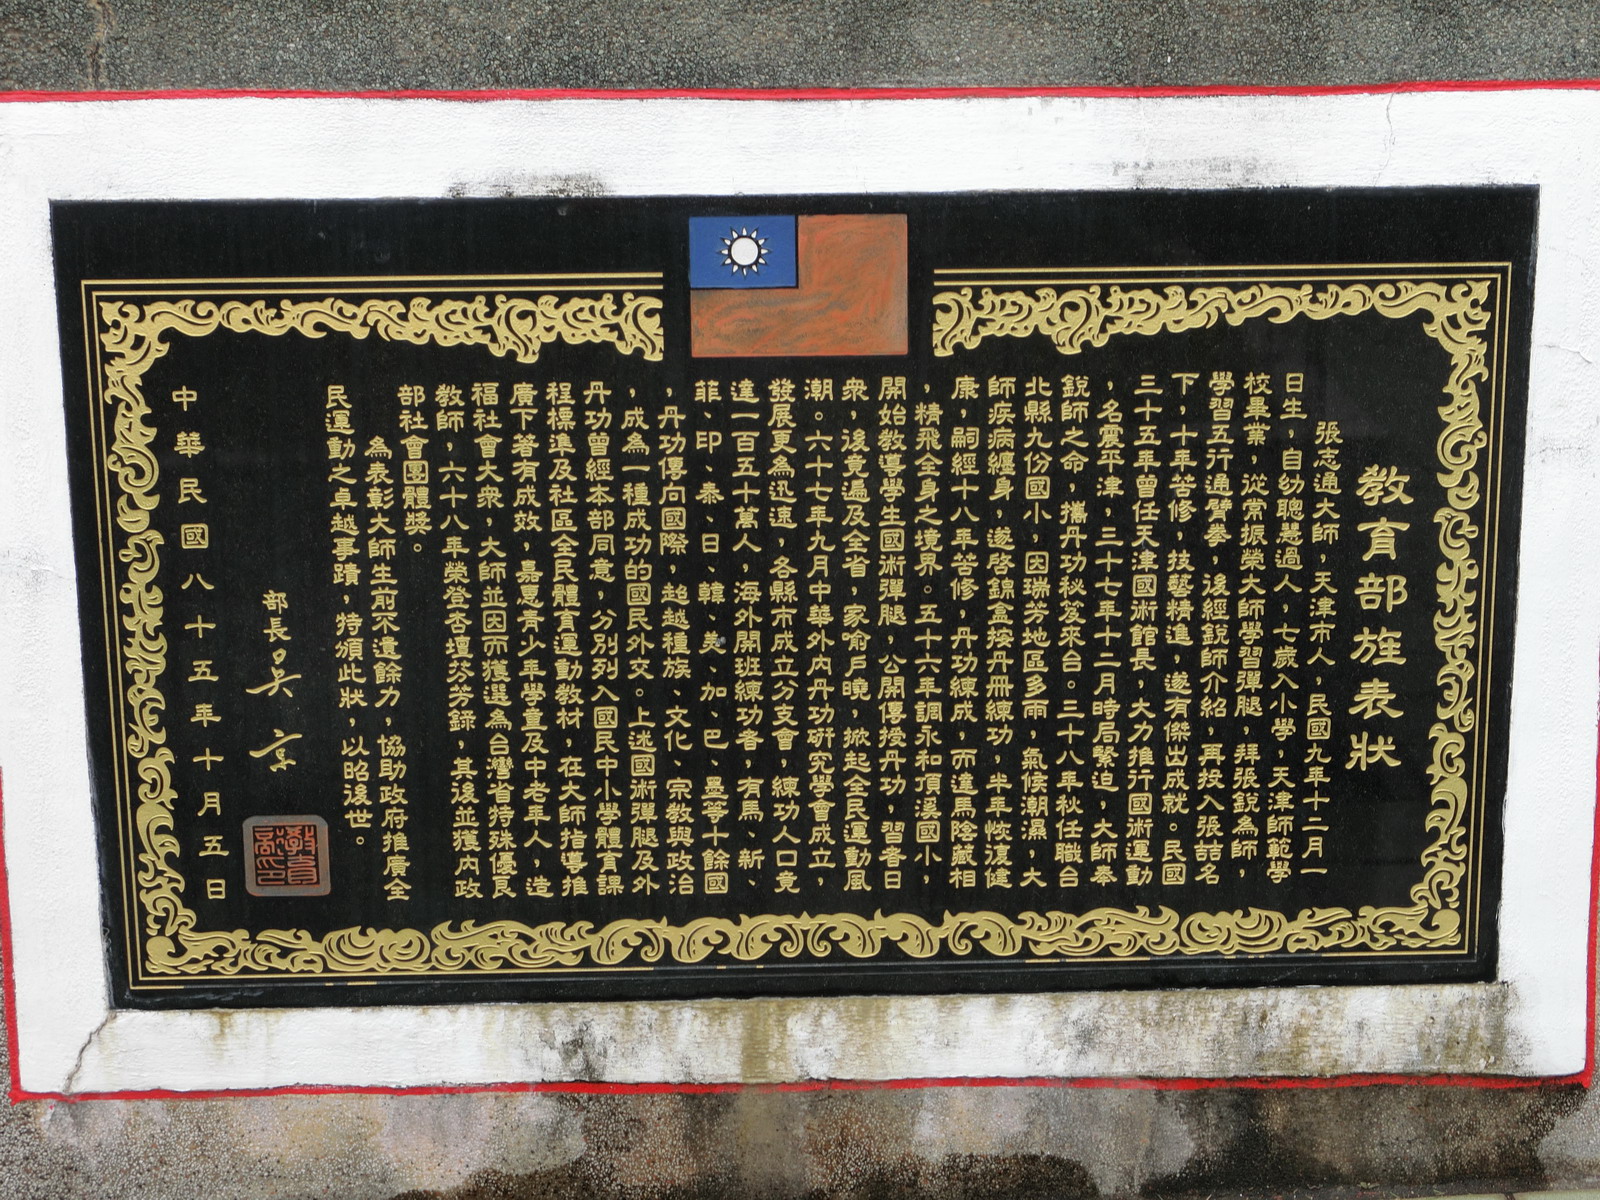 教育部旌表狀
張志通大師，天津市人，民國九年十二月一
日生，自幼聰慧過人，七歲入小學，天津師範學
校畢業，從常振榮大師學習彈腿，拜張銳為師，
學習五行通臂拳，後經銳師介紹，再投入張喆名
下，十年苦修，技藝精進，遂有傑出成就。民國
三十五年曾任天津國術館長，大力推行國術運動
，名震平津，三十七年十二月時局緊迫，大師奉
銳師之命，攜丹功秘笈來台。三十八年秋任職台
北縣九份國小，因瑞芳地區多雨，氣候潮濕，大
師疾病纏身，遂啓錦盒按丹冊練功，半年恢復健
康，嗣經十八年苦修，丹功練成，而達馬陰藏相
，精飛全身之境界。五十六年調永和頂溪國小，
開始教導學生國術彈腿，公開傳授丹功，習者日
衆，後竟遍及全省，家喻戶曉，掀起全民運動風
潮。六十七年九月中華外內丹功研究學會成立，
發展更為迅速，各縣市成立分支會，練功人口竟
達一百五十萬人，海外開班練功者，有馬、新、
菲、印、泰、日、韓、美、加、巴、墨等十餘國
，丹功傳向國際，超越種族、文化、宗教與政治
，成為一種成功的國民外交。上述國術彈腿及外
丹功曾經本部同意，分別列入國民中小學體育課
程標準及社區全民體育運動教材，在大師指導推
廣下著有成效，嘉惠青少年學童及中老年人，造
福社會大衆，大師並因而獲選為台灣省特殊優良
教師，六十八年榮登杏壇芬芳錄，其後並獲內政
部社會團體獎。
為表彰大師生前不遺餘力，協助政府推廣全
民運動之卓越事蹟，特頒此狀，以昭後世。
部長吳京
中華民國八十五年十月五日